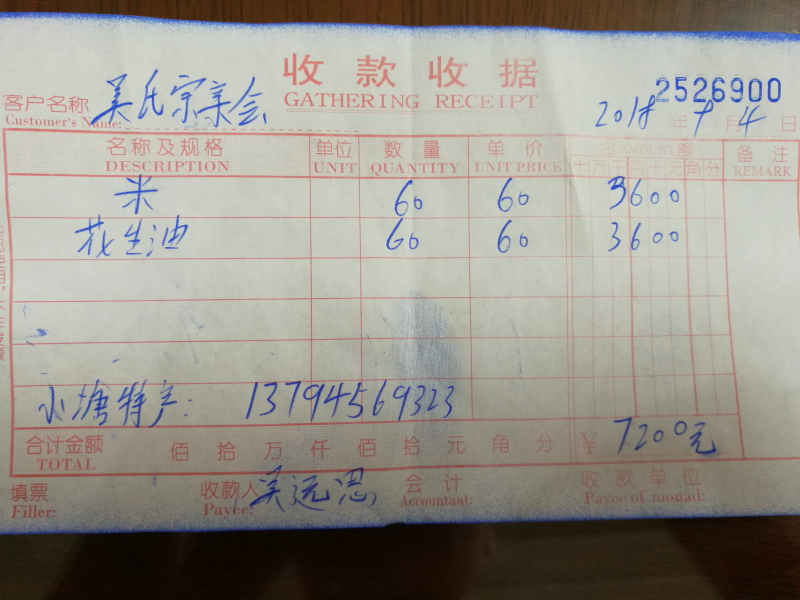 收款收据
GATHERING RECEIPT
2526900
客户名称 吴氏宗亲会
Customer's Name:
2018年9月4日
名称及规格 单位 数量 单价 金 AMOUNT 额 备注
DESCRIPTION UNIT QUANTITY UNIT PRICE 十万千百十元角分 REMARK
米 60 60 3600
花生油 60 60 3600
小塘特产: 13794569323
合计金额 佰 拾 万 仟 佰 拾 元 角 分 ¥ 7200元
TOTAL
填票 收款人 吴远思 会计 收款单位
Filler: Payee: Accountant: Payee of monad: